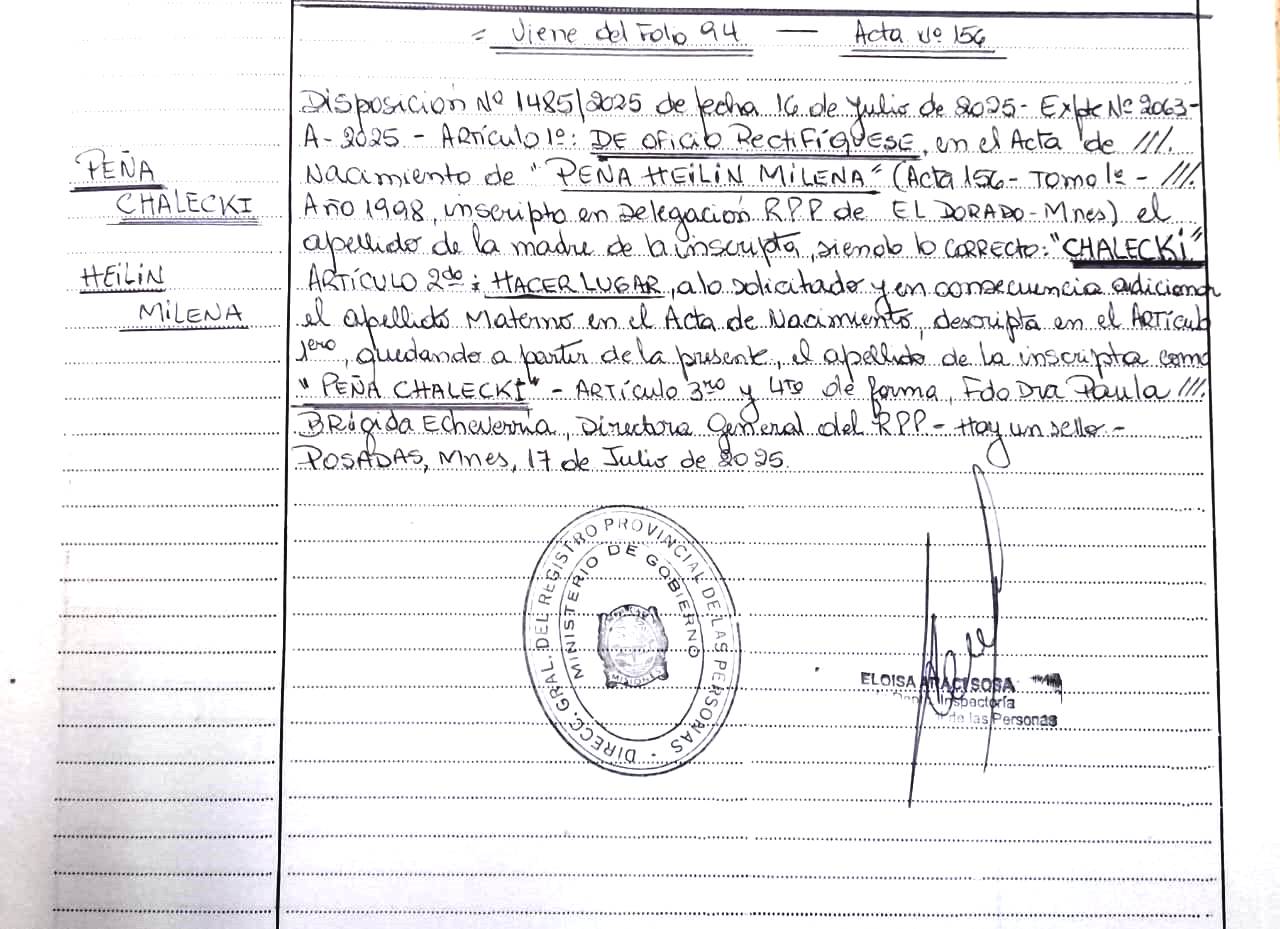 = Viene del Folio 94 — Acta Nº 156
Disposición Nº 1485/2025 de fecha 16 de Julio de 2025- Expte Nº 2063-
A-2025 - Artículo 1º: DE OFICIO RECTIFÍQUESE, en el Acta de ///.
Nacimiento de "PEÑA HEILIN MILENA" (Acta 156- Tomo 1º - ///.
Año 1998, inscripto en Delegación R.P.P. de EL DORADO-Mnes) el
apellido de la madre de la inscripta, siendo lo CORRECTO: "CHALECKI"
ARTÍCULO 2do: HACER LUGAR, a lo solicitado y en consecuencia adicionar
el apellido Materno en el Acta de Nacimiento, descripta en el Artículo
1ero, quedando a partir de la presente, el apellido de la inscripta como
"PEÑA CHALECKI" - ARTÍCULO 3ro y 4to de forma, Fdo Dra Paula ///.
Brígida Echeverría, Directora General del RPP- Hay un sello-
POSADAS, Mnes, 17 de Julio de 2025.
PEÑA
CHALECKI
HEILIN
MILENA
DIRECC. GRAL. DEL REGISTRO PROVINCIAL DE LAS PERSONAS
MINISTERIO DE GOBIERNO
MISIONES
ELOISA ARACI SOSA
Inspectoría
de las Personas